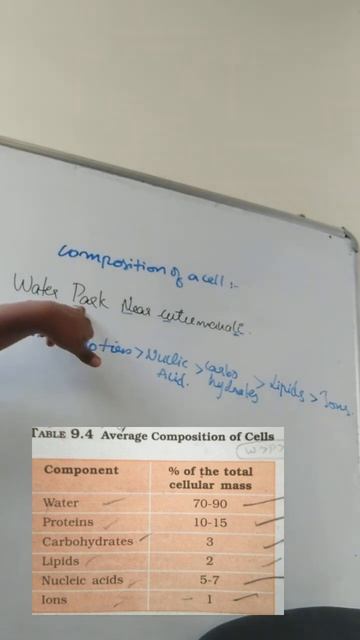 composition of a cell :-
Water Park Near
> Nuclic Acid. > Carbo hydrates > Lipids > Ions
TABLE 9.4 Average Composition of Cells
Component % of the total cellular mass
Water 70-90
Proteins 10-15
Carbohydrates 3
Lipids 2
Nucleic acids 5-7
Ions 1